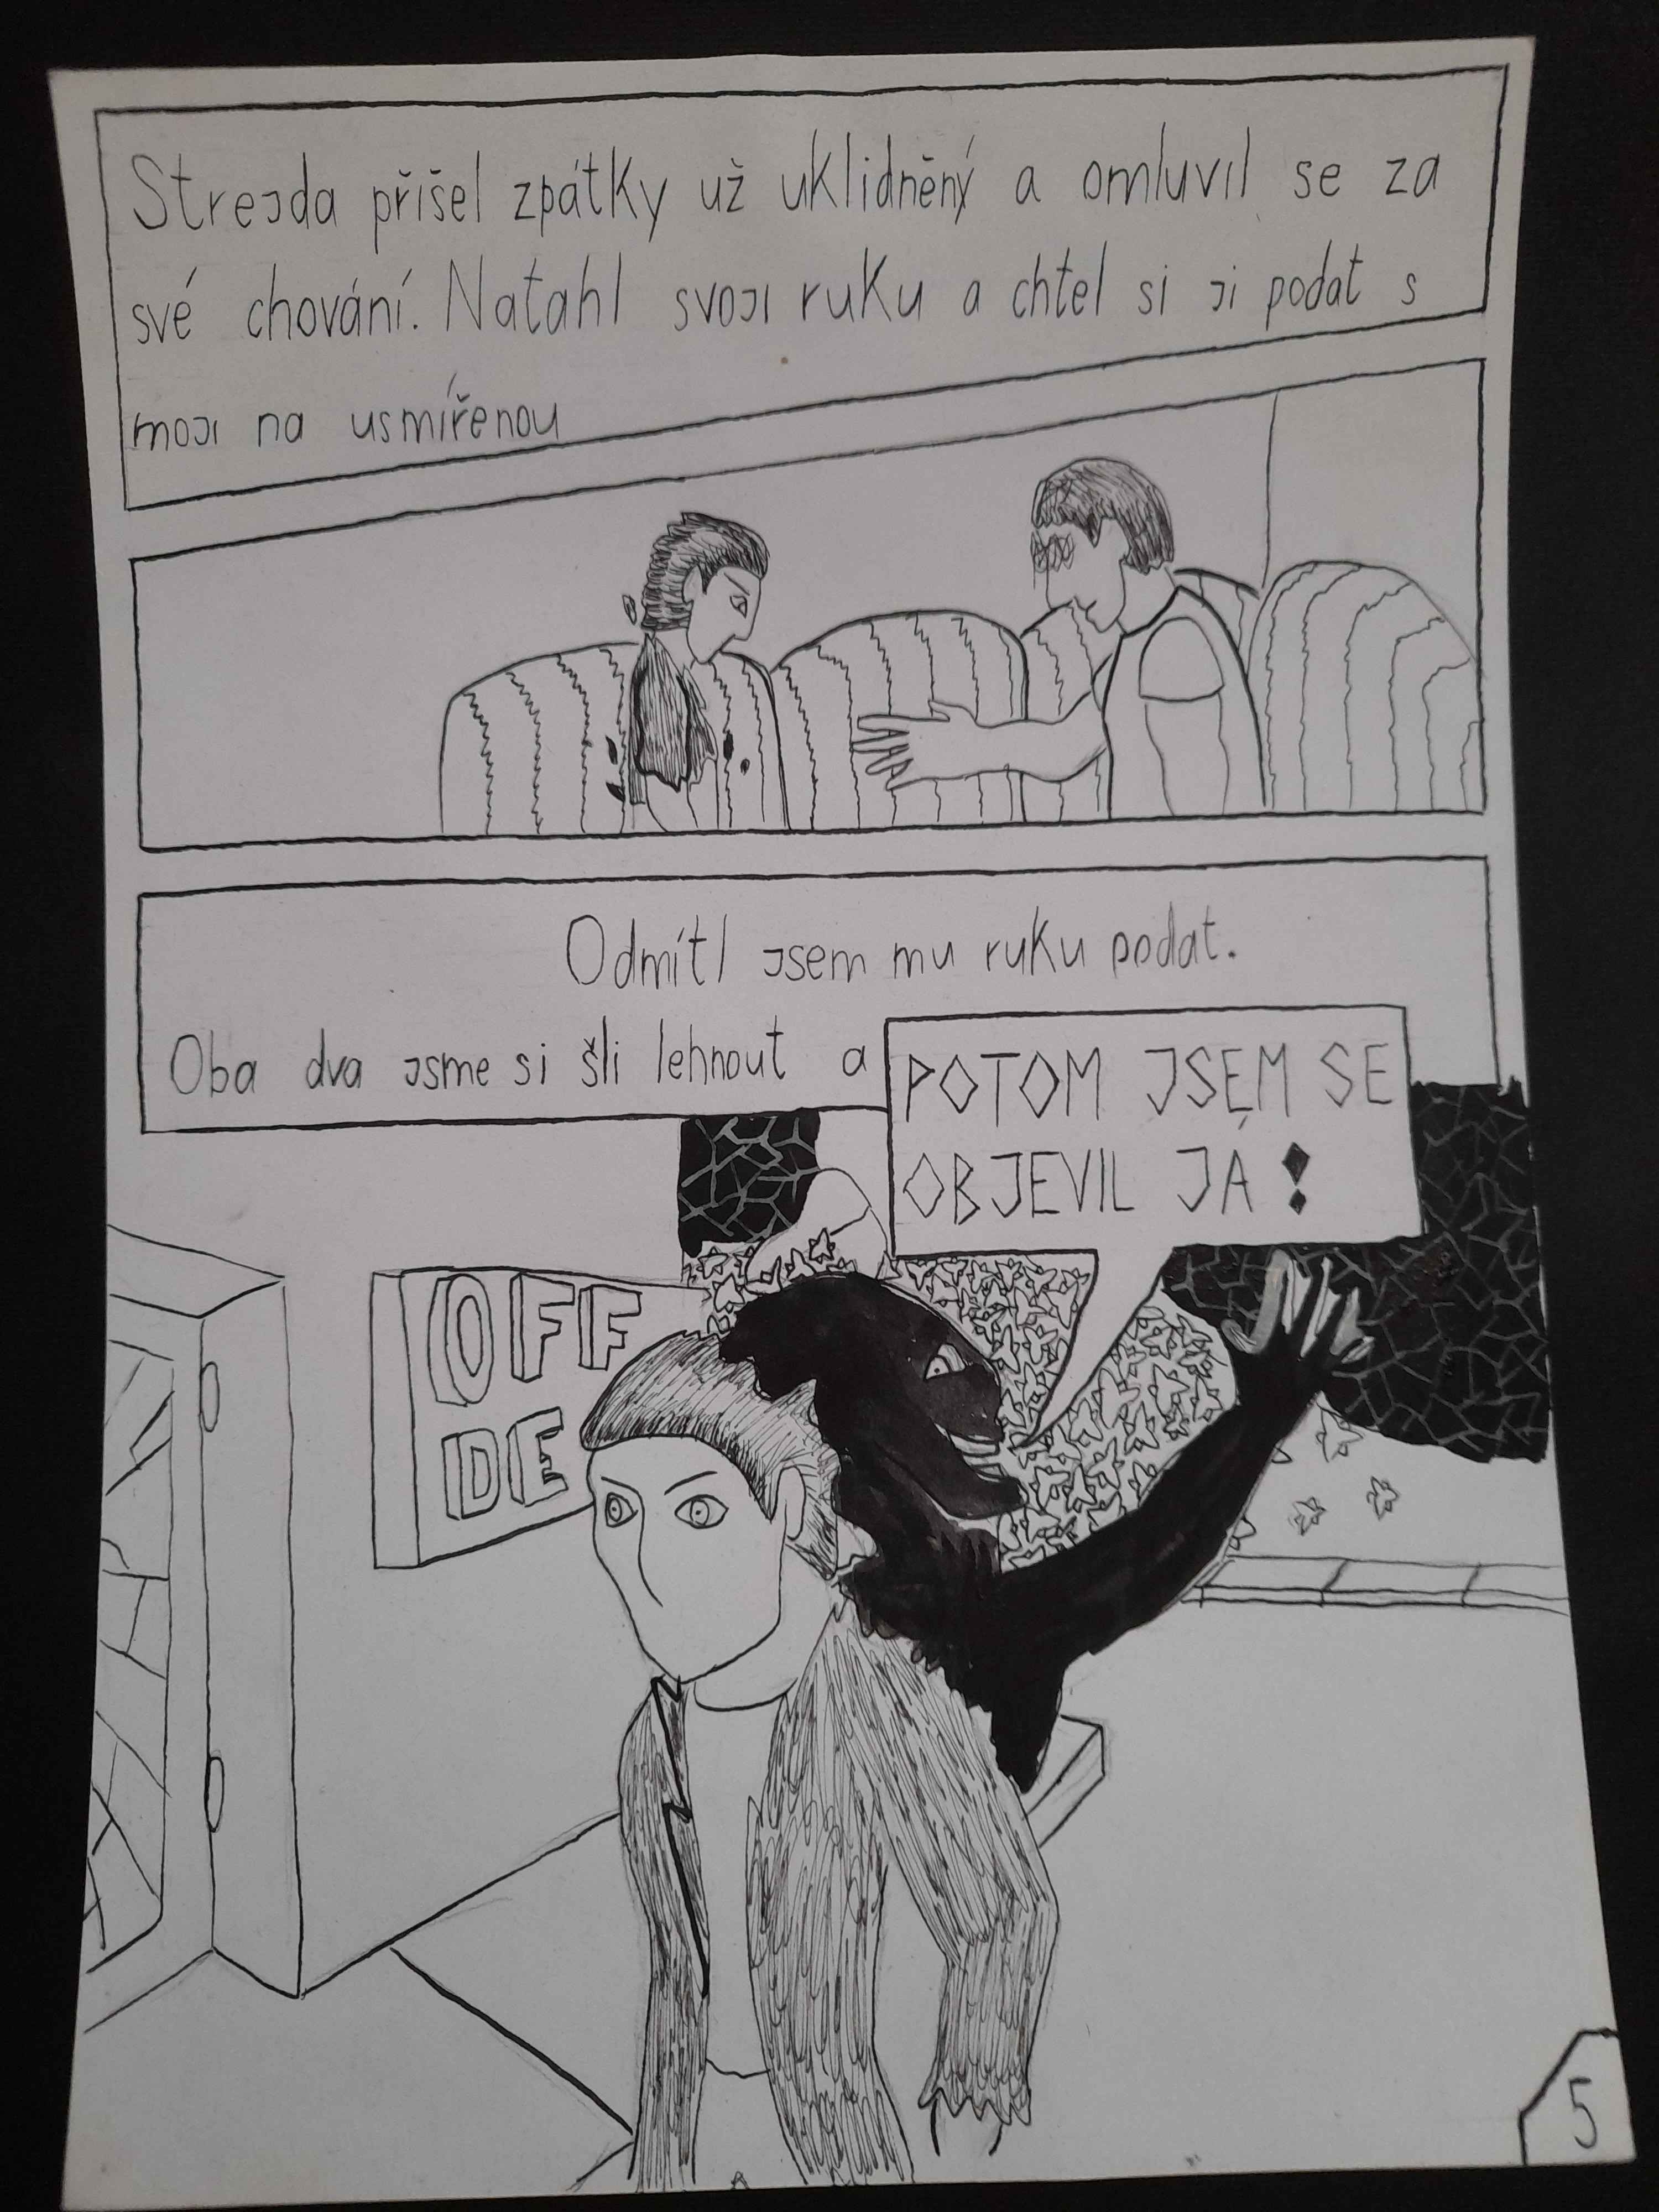 Strejda přišel zpátky už uklidněný a omluvil se za
své chování. Natahl svoji ruku a chtel si ji podat s
moji na usmířenou
Odmítl jsem mu ruku podat.
Oba dva jsme si šli lehnout a
POTOM JSEM SE
OBJEVIL JÁ!
OFF
DE
5